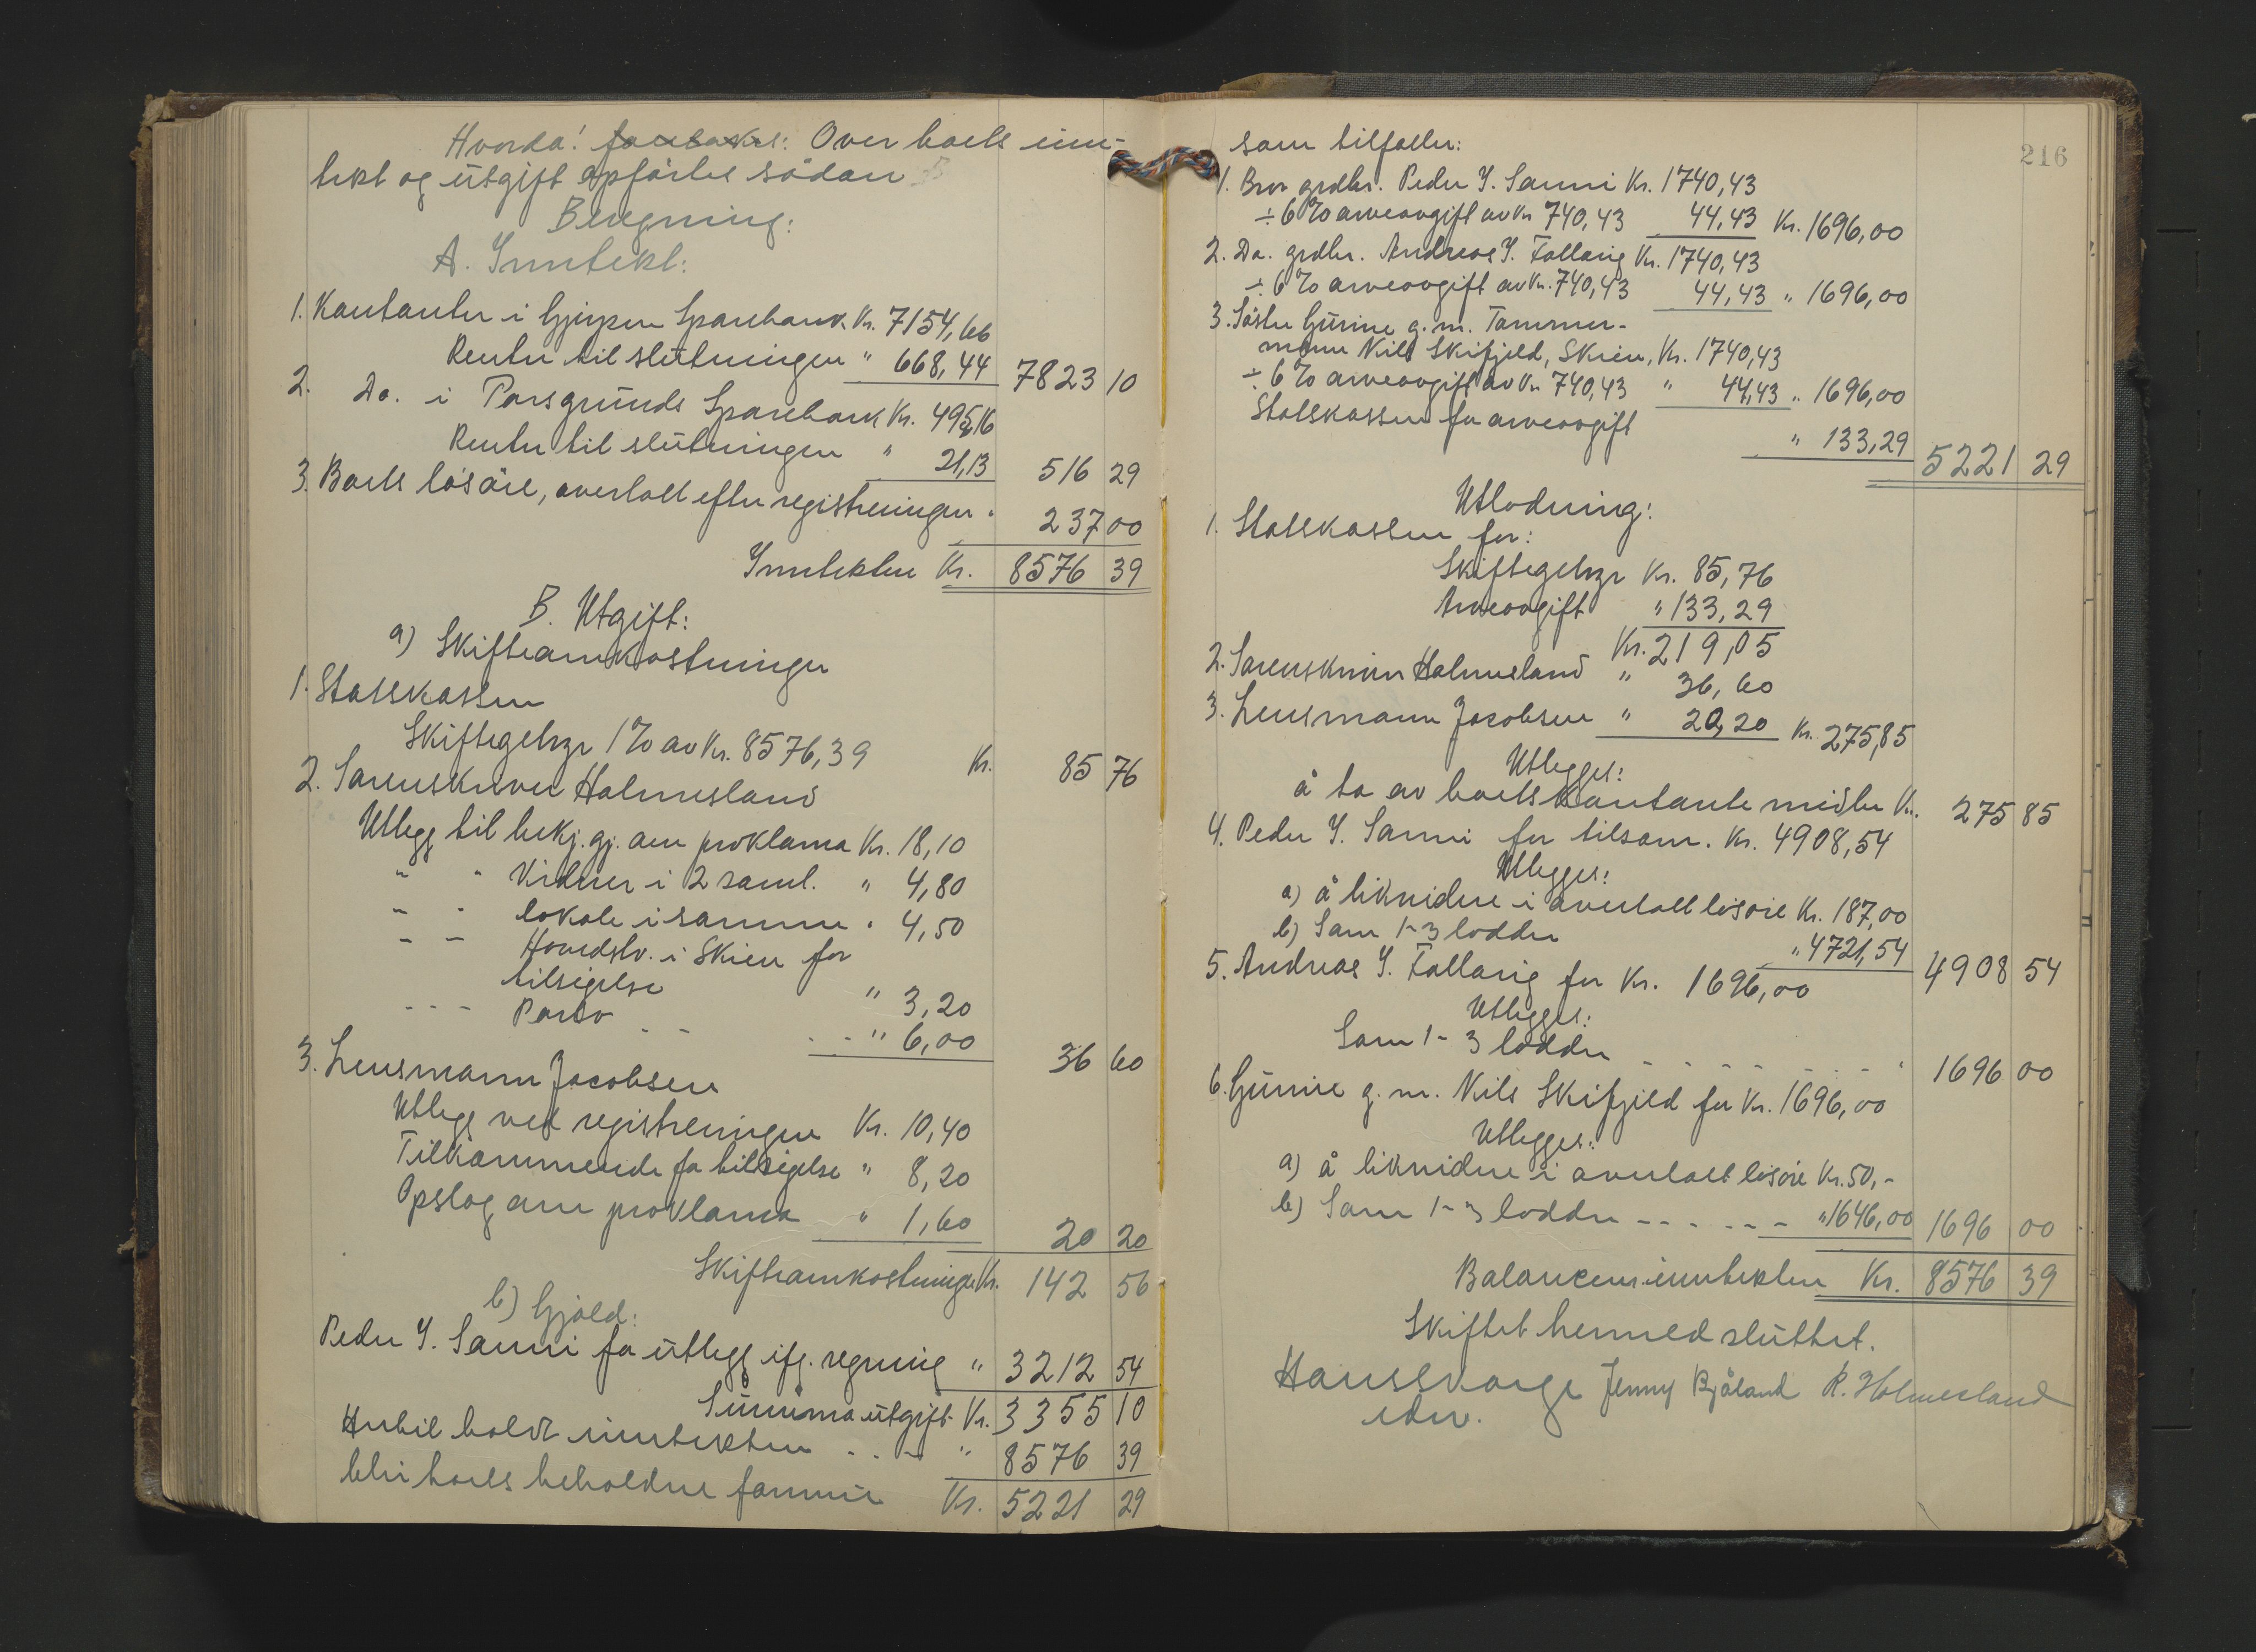 Hvorda! foretokes: Over boets inn-
tekt og utgift opförtes sådan
Beregning:
A. Inntekt:
1. Kontanter i Gjerpen Sparebank Kr. 7154,66
Renter til slutningen " 668,44 7823 10
2. Do. i Porsgrunds Sparebank Kr. 495,16
Renter til slutningen " 21,13 516 29
3. Boets lösöre, overtatt efter registreringen " 237 00
Inntekten Kr. 8576 39
B. Utgift:
a) Skifteomkostninger
1. Statskassen
Skiftegebyr 1% av Kr. 8576,39 Kr. 85 76
2. Sorenskriver Holmesland
Utlegg til bekj.gj. om proklama Kr. 18,10
" " Vidner i 2 saml. " 4,80
" " lokale i samme " 4,50
" " Hovedstv. i Skien for
tilsigelse " 3,20
- - - Porto - - - - " 6,00 36 60
3. Lensmann Jacobsen
Utlegg ved registreringen Kr. 10,40
Tilkommende for tilsigelse " 8,20
Opslag om proklama " 1,60 20 20
Skifteomkostninger Kr. 142 56
b) Gjeld:
Peder I. Sanni for utlegg ifg. regning " 3212 54
Summa utgift Kr. 3355 10
Hertil holdt inntekten - - - " 8576 39
blir boets beholdne formue Kr. 5221 29
216
som tilfaller:
1. Bror grdbr. Peder I. Sanni Kr. 1740,43
÷ 6% arveavgift av Kr. 740,43 44,43 Kr. 1696,00
2. Do. grdbr. Andreas I. Follaug Kr. 1740,43
÷ 6% arveavgift av Kr. 740,43 44,43 " 1696,00
3. Söster Gurine g.m. Tømmer-
mann Nils Skifjeld, Skien, Kr. 1740,43
÷ 6% arveavgift av Kr. 740,43 " 44,43 " 1696,00
Statskassen for arveavgift " 133,29 5221 29
Utlodning:
1. Statskassen for:
Skiftegebyr Kr. 85,76
Arveavgift " 133,29
Kr. 219,05
2. Sorenskriver Holmesland " 36,60
3. Lensmann Jacobsen " 20,20 Kr. 275,85
Utlegges:
å ta av boets kontante midler Kr. 275 85
4. Peder I. Sanni for tilsam. Kr. 4908,54
Utlegges:
a) å likvidere i overtatt lösöre Kr. 187,00
b) Som 1-3 lodder " 4721,54 4908 54
5. Andreas I. Follaug for Kr. 1696,00
Utlegges:
Som 1-3 lodder - - - - - - " 1696 00
6. Gurine g.m. Nils Skifjeld for Kr. 1696,00
Utlegges:
a) å likvidere i overtatt lösöre Kr. 50,-
b) Som 1-3 lodder - - - - - - " 1646,00 1696 00
Balanceres inntekten Kr. 8576 39
Skiftet hermed sluttet.
Jenny Bjåland R. Holmesland